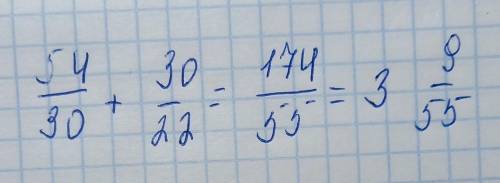 54/30 + 30/22 = 174/55 = 3 9/55